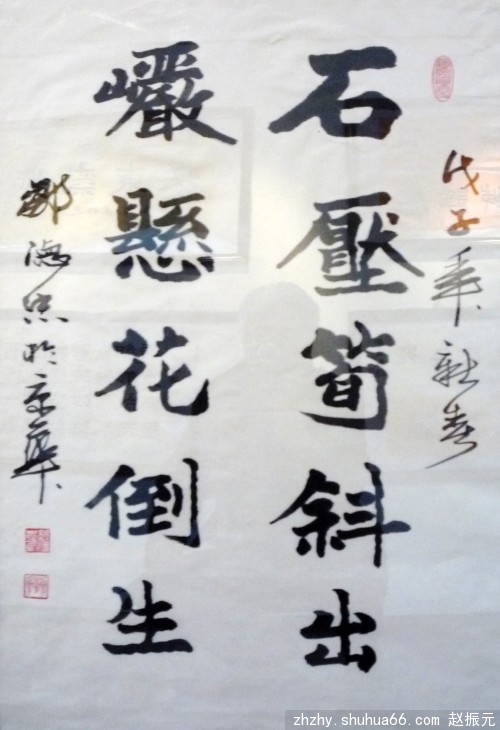 戊子年新春
石壓筍斜出
巖懸花倒生
鄧海忠於京華
zhzhy.shuhua66.com 赵振元